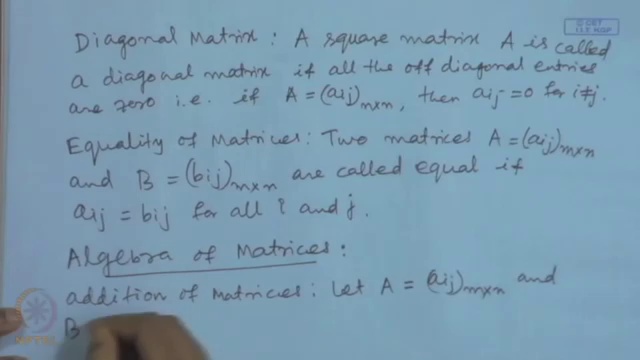 Diagonal Matrix : A square matrix A is called
a diagonal matrix if all the off diagonal entries
are zero i.e. if A = (aij)m×n, then aij = 0 for i≠j.
Equality of Matrices: Two matrices A = (aij)m×n
and B = (bij)m×n are called equal if
aij = bij for all i and j.
Algebra of Matrices:
addition of Matrices: Let A = (aij)m×n and
B
© CET
I.I.T. KGP